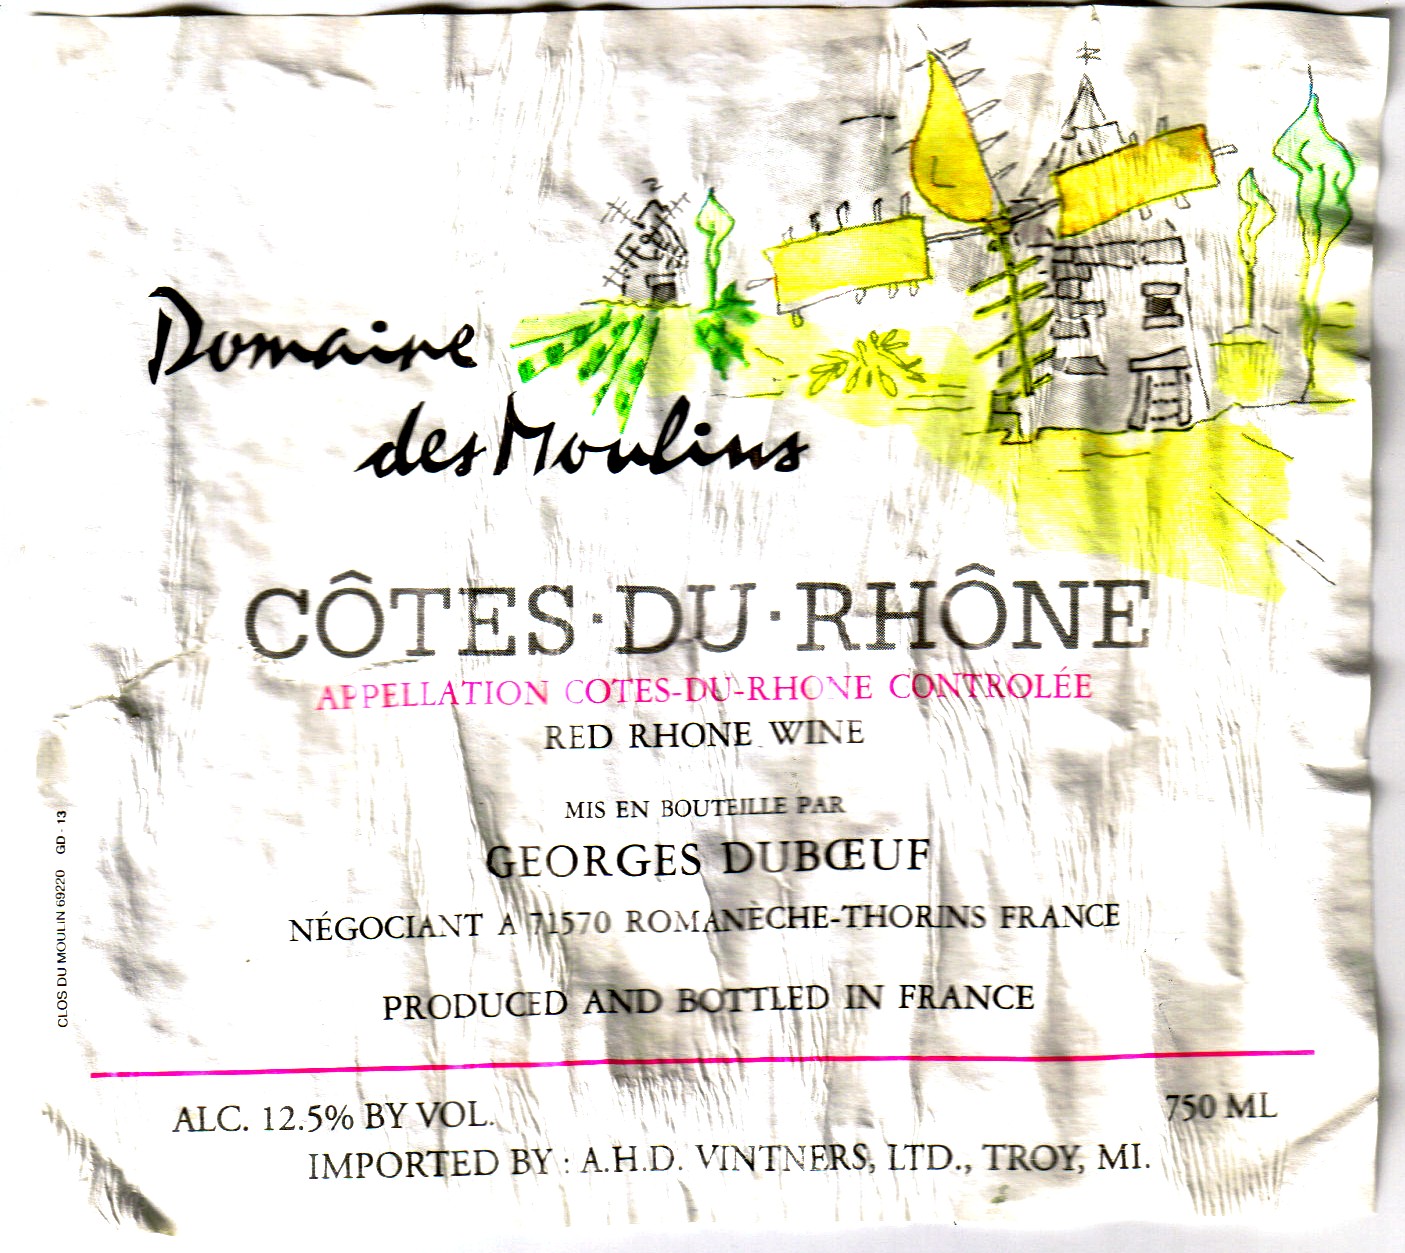 Domaine
des Moulins
CÔTES·DU·RHÔNE
APPELLATION COTES-DU-RHONE CONTROLÉE
RED RHONE WINE
MIS EN BOUTEILLE PAR
GEORGES DUBŒUF
NÉGOCIANT A 71570 ROMANÈCHE-THORINS FRANCE
PRODUCED AND BOTTLED IN FRANCE
ALC. 12.5% BY VOL.
750 ML
IMPORTED BY : A.H.D. VINTNERS, LTD., TROY, MI.
CLOS DU MOULIN 69220 GD - 13